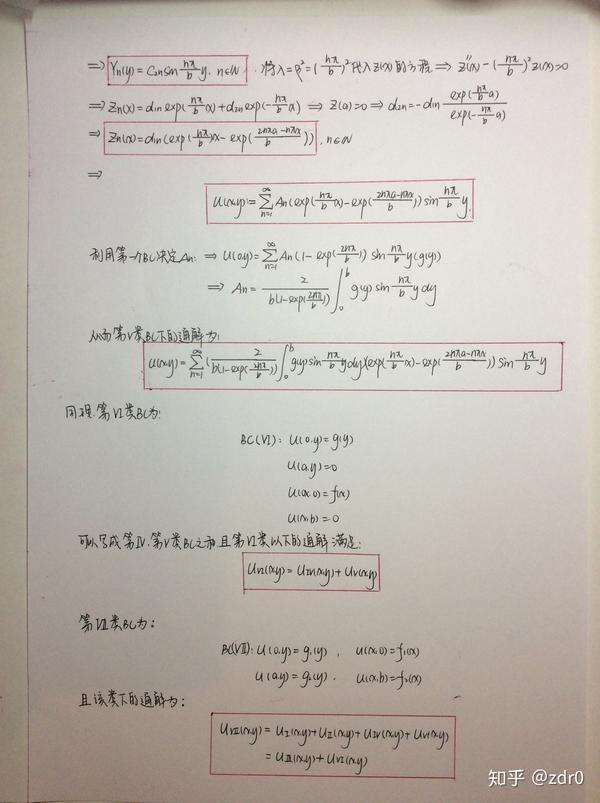 ⇒ Yn(y) = C2n sin nπ/b y, n∈N. 将λ=β²=(nπ/b)²代入Z(x)的方程 ⇒ Z''(x) - (nπ/b)² Z(x)=0
⇒ Zn(x) = d1n exp(nπ/b x) + d2n exp(-nπ/b x) ⇒ Z(a)=0 ⇒ d2n = -d1n exp(nπ/b a)/exp(-nπ/b a)
⇒ Zn(x) = d1n(exp(nπ/b)x - exp(2nπa-nπx/b)), n∈N
⇒
U(x,y) = ∑n=1^∞ An(exp(nπ/b x) - exp(2nπa-nπx/b)) sin nπ/b y.
利用第一个BC决定An: ⇒ U(0,y) = ∑n=1^∞ An(1 - exp(2nπ/b)) sin nπ/b y (g(y))
⇒ An = 2/b(1-exp(2nπ/b)) ∫0^b g(y) sin nπ/b y dy
从而第V类BC下的通解为:
U(x,y) = ∑n=1^∞ (2/b(1-exp(2nπ/b)) ∫0^b g(y) sin nπ/b y dy)(exp(nπ/b x) - exp(2nπa-nπx/b)) sin nπ/b y
同理, 第VI类BC为:
BC(VI): U(0,y) = g(y)
U(a,y) = 0
U(x,0) = f(x)
U(x,b) = 0
可以写成第IV, 第V类BC之和, 且第VI类以下的通解满足:
UVI(x,y) = UIV(x,y) + UV(x,y)
第VII类BC为:
BC(VII): U(0,y) = g1(y), U(x,0) = f1(x)
U(a,y) = g2(y). U(x,b) = f2(x)
且该类下的通解为:
UVII(x,y) = UI(x,y) + UII(x,y) + UIV(x,y) + UV(x,y)
= UIII(x,y) + UVI(x,y)
知乎 @zdr0